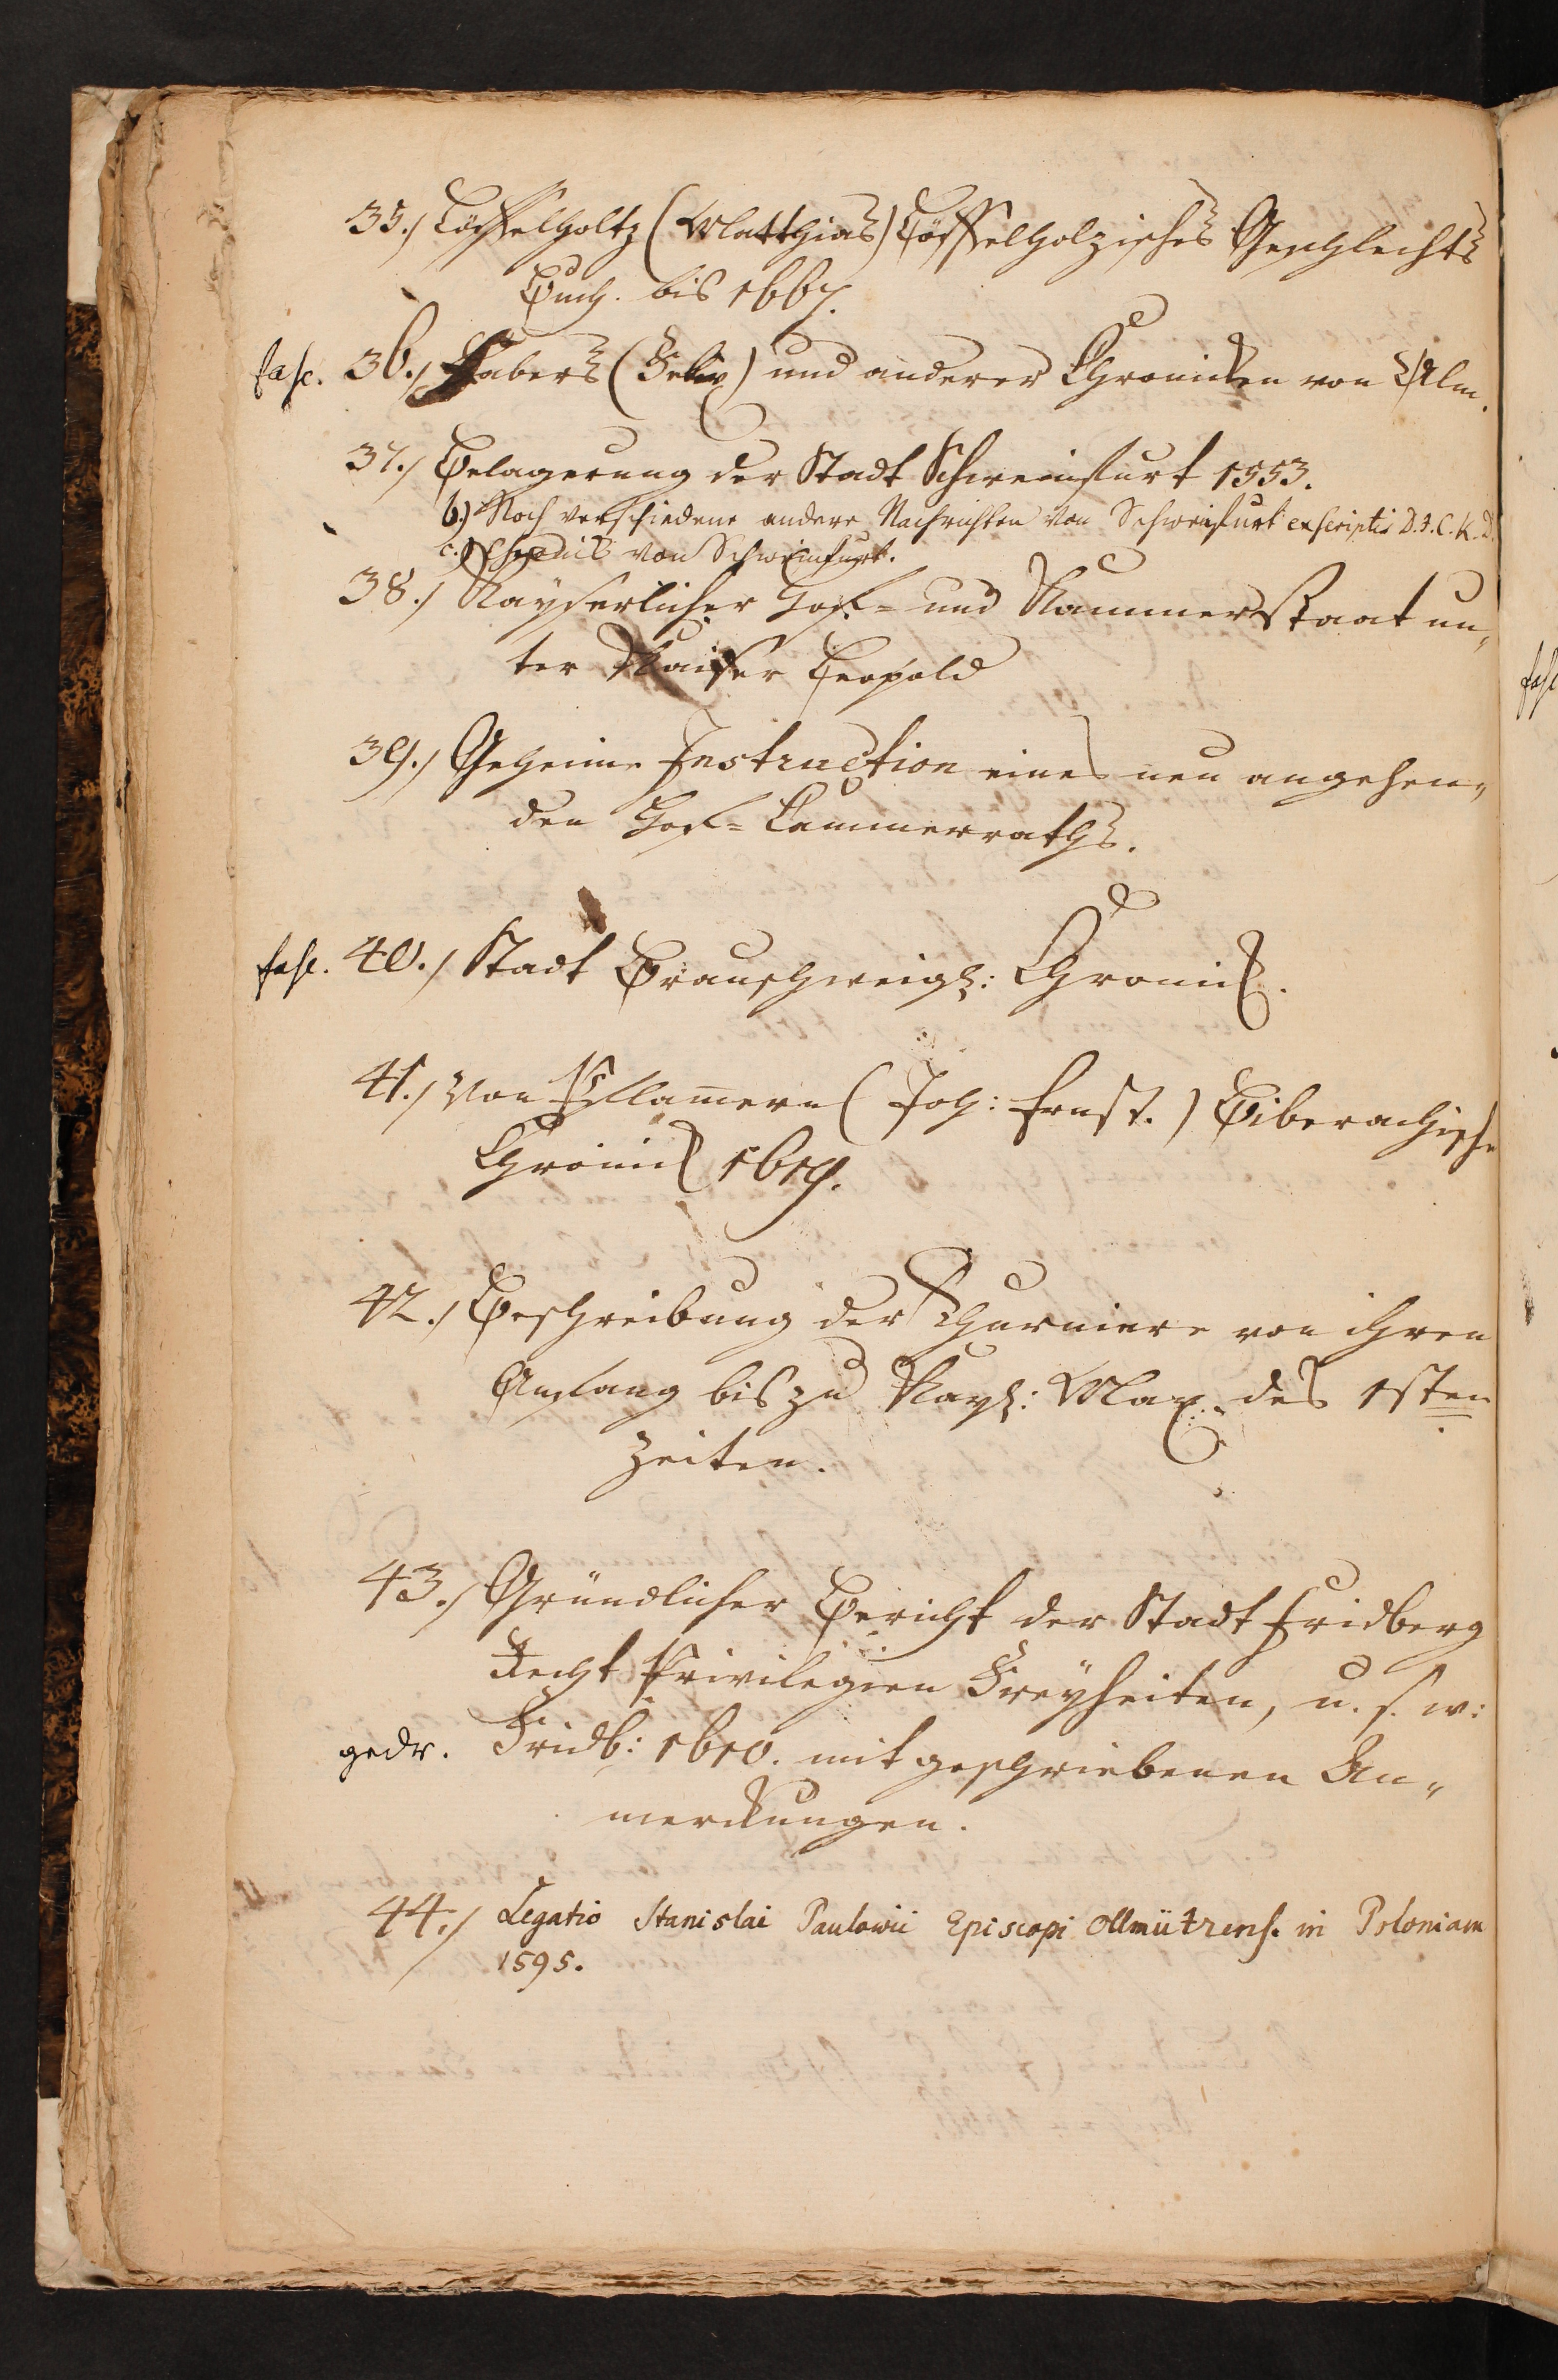 35./ Löffelholtz (Matthias) Löffelholzisches Geschlechts
Buch. bis 1667.
fasc. 36./ Fabers (Felix) und anderer Chronicken von Ulm.
37./ Belagerung der Stadt Schweinfurt 1553.
b.) Noch verschiedene andere Nachrichten von Schweinfurt ex scriptis D. J. C. K. D.
c.) Chronick von Schweinfurt.
38./ Kayserlicher Hof- und Kammerstaat un„
ter Kaiser Leopold
39./ Geheime Instruction eines neu angehen„
den Hof- Cammerraths.
fasc. 40./ Stadt Braunschweigs: Chronick.
41./ Von Pflamern (Joh: Ernst.) Biberachische
Chronick 1619.
42./ Beschreibung der Thurniere von ihren
Anfang bis zu Kays: Max. des 1sten
Zeiten.
43./ Gründlicher Bericht der Stadt Fridberg
Recht Privilegien Freyheiten, u. s. w:
gedr. Fridb: 1610. mit geschriebenen An„
merckungen.
44./ Legatio Stanislai Paulowii Episcopi Ollmützens. in Poloniam
1595.
fasc